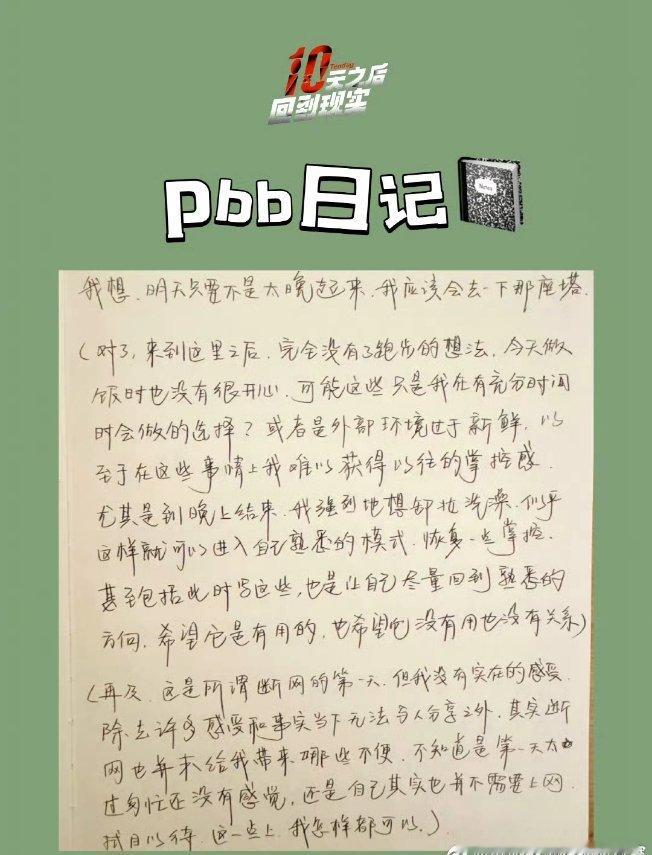 10天之后
Tenday
回到现实
pbb日记
Notes
我想，明天只要不是太晚起来，我应该会去一下那座塔．
（对了，来到这里之后，完全没有了跑步的想法，今天做
饭时也没有很开心．可能这些只是我在有充分时间
时会做的选择？或者是外部环境过于新鲜，以
至于在这些事情上我难以获得以往的掌控感．
尤其是到晚上结束，我强烈地想卸妆洗澡，似乎
这样就可以进入自己熟悉的模式，恢复一些掌控．
甚至包括此时写这些，也是让自己尽量回到熟悉的
方向，希望它是有用的，也希望它没有用也没有关系）
（再及，这是所谓断网的第一天，但我没有实在的感受．
除去许多感受和事实当下无法与人分享之外，其实断
网也并未给我带来哪些不便．不知道是第一天太
过匆忙还没有感觉，还是自己其实也并不需要上网．
拭目以待．这一点上，我怎样都可以．）